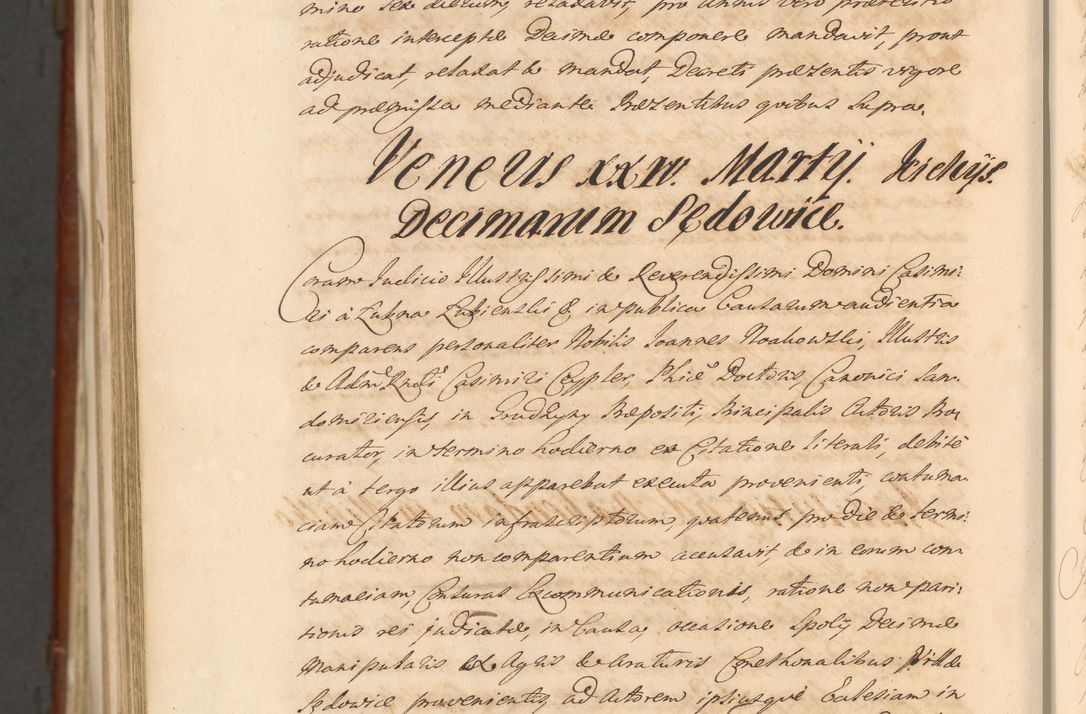 mino sex diebus, relaxavit, pro annis vero præteritis
ratione interceptæ Decimæ componere mandavit, prout
adjudicat, relaxat & mandat, Decreti præzentis vigore
ad præmissa mediante. Præzentibus quibus Supra.
Veneris XXIV. Martij.
Decimarum Sędowice.
Coram Judicio Illustrissimi & Reverendissimi Domini Casimi:
ri à Łubna Łubienski &c in publica Causarum audientia
comparens personaliter Nobilis Joannes Noakowski, Illustris
& Admᵈ Rndi Casimiri Cypler, Phiæ Doctoris, Canonici San:
domiriensis, in Grudzyny Præpositi, Principalis Actoris Pro:
curator, in termino hodierno ex Citatione literali, debitè
ut à tergo illius apparebat executa provenienti, contuma:
ciam Citatorum infrascriptorum, quatenus pro die & termi:
no hodierno non comparentium accusavit, & in eorum con:
tumaciam, Censuras Excommunicationis, ratione non pari:
tionis rei judicatæ, in Causa, occasione Spolij Decimæ
Manipularis ex Agris & araturis Cmethonalibus Villæ
Sędowice provenientis, ad Actorem ipsiusque Ecclesiam in